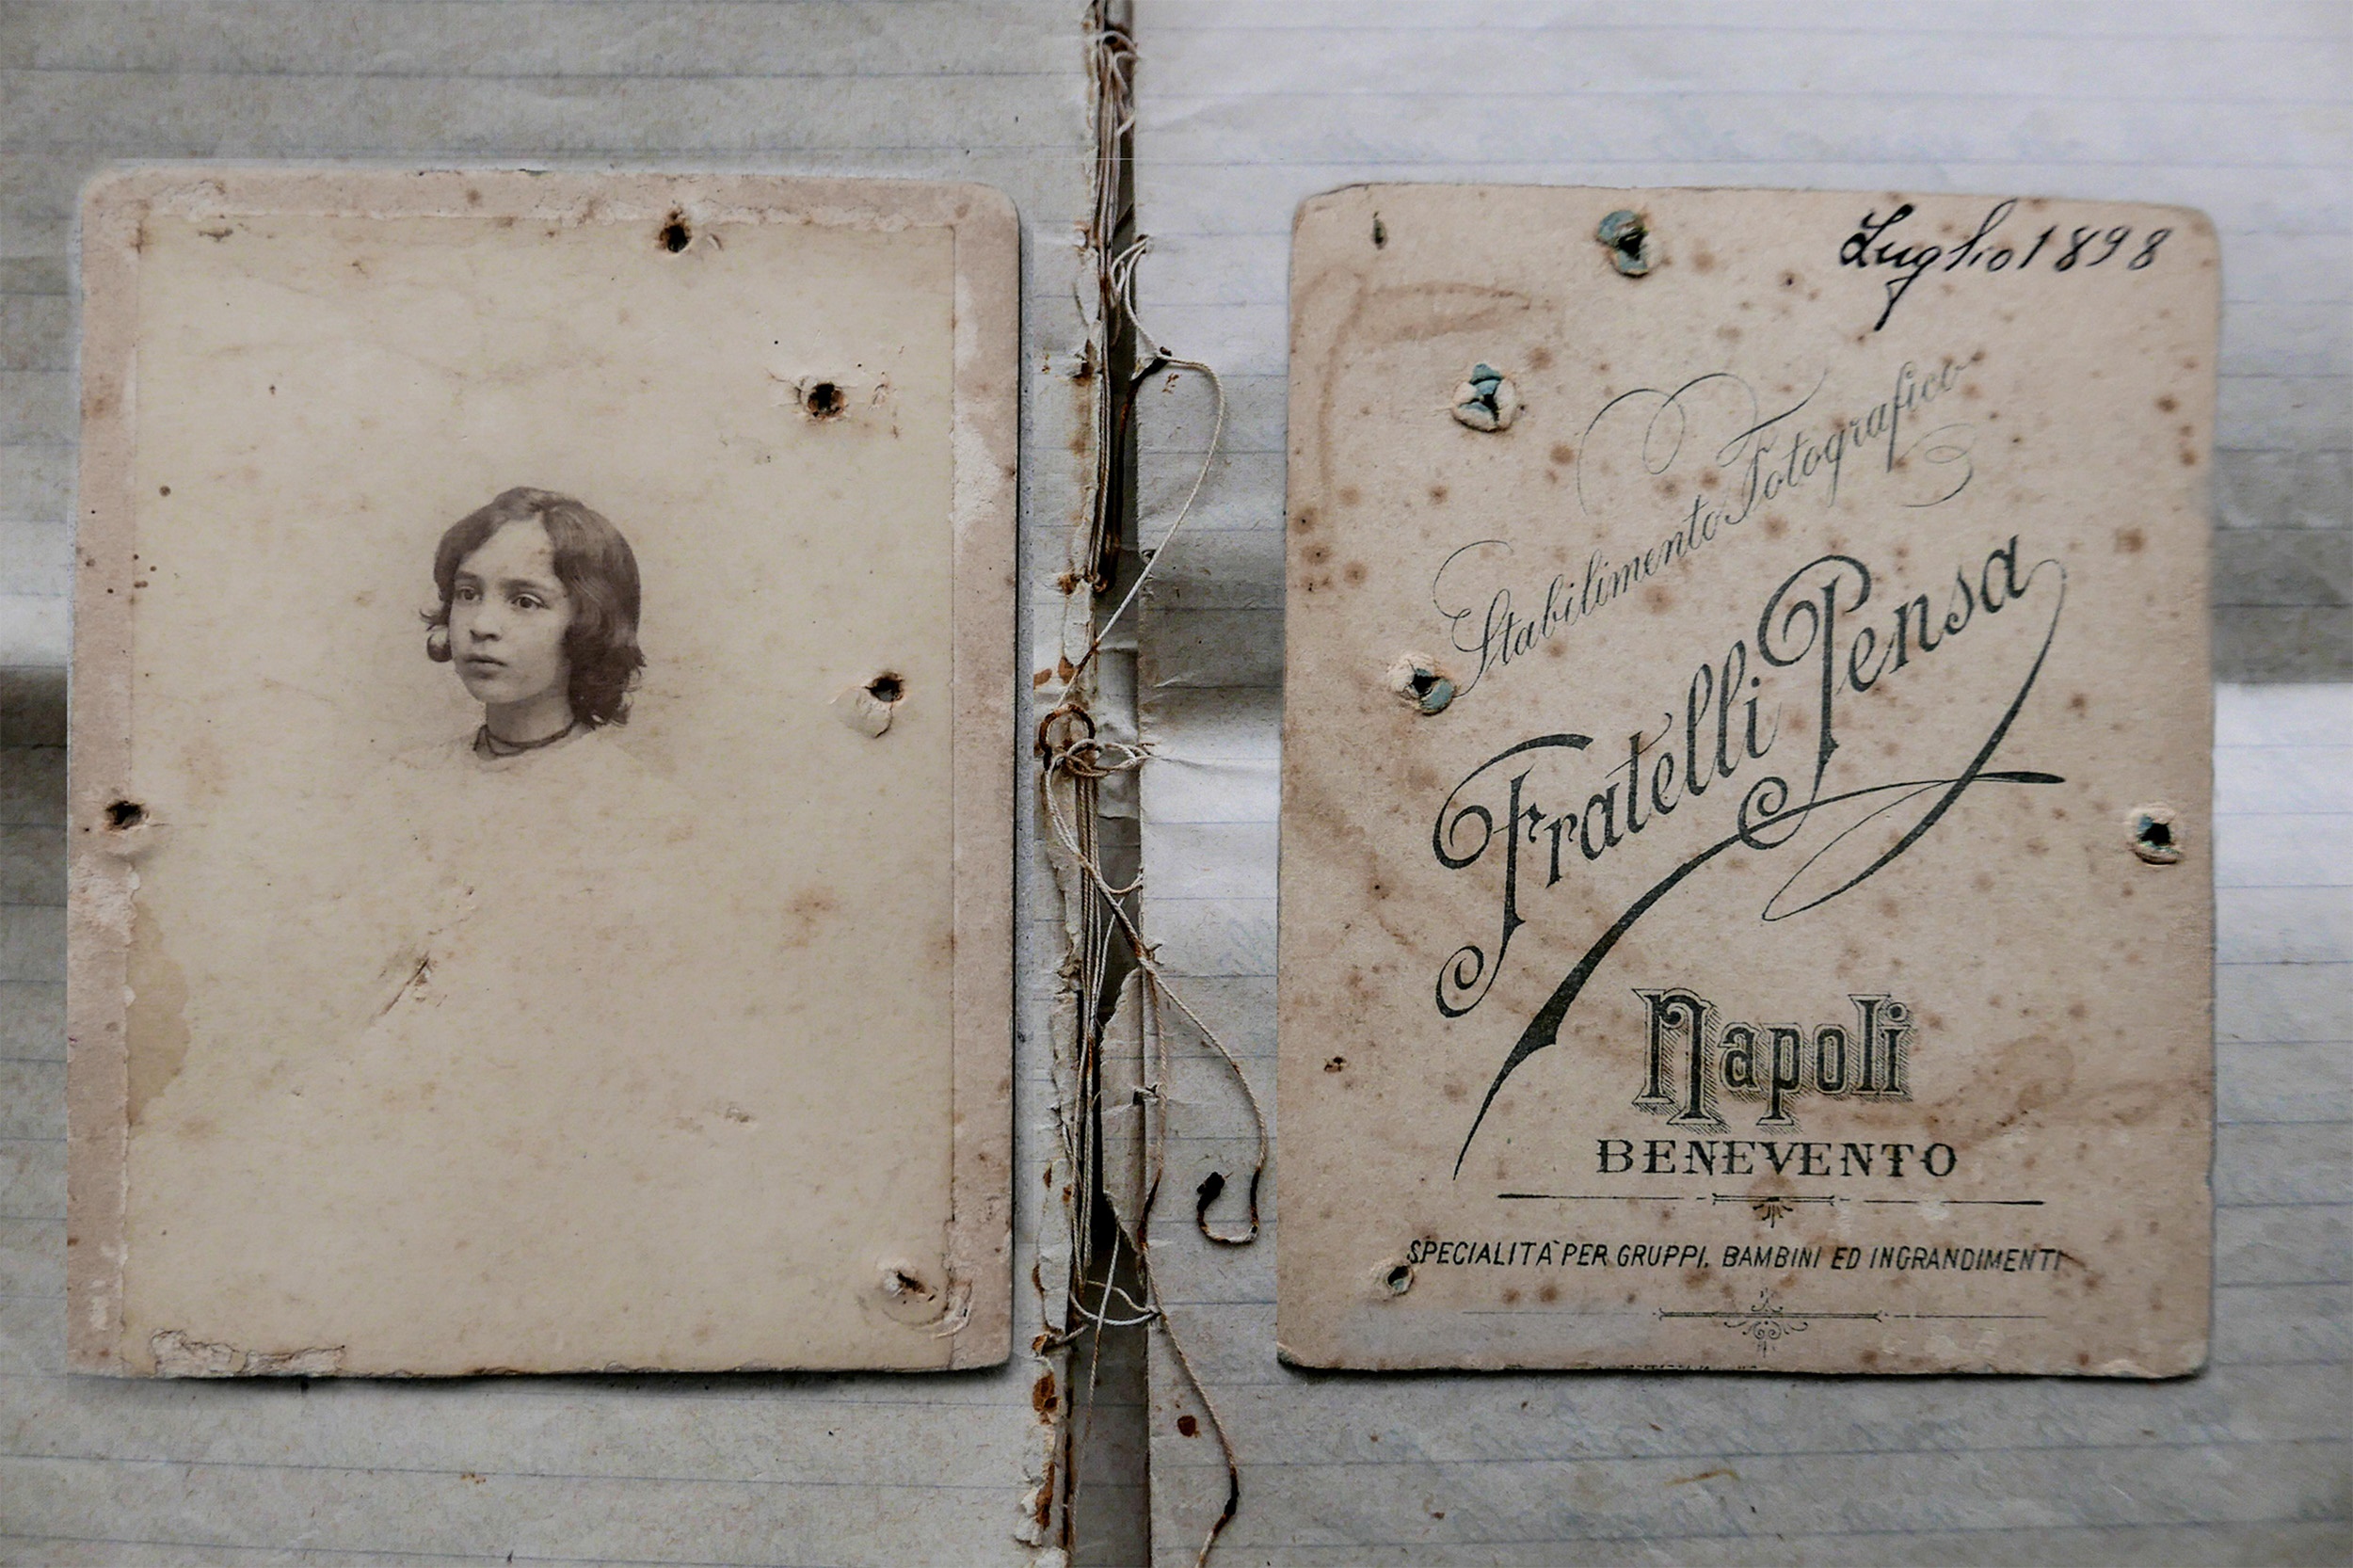 Luglio 1898
Stabilimento Fotografico
Fratelli Pensa
Napoli
BENEVENTO
SPECIALITA' PER GRUPPI. BAMBINI ED INGRANDIMENTI